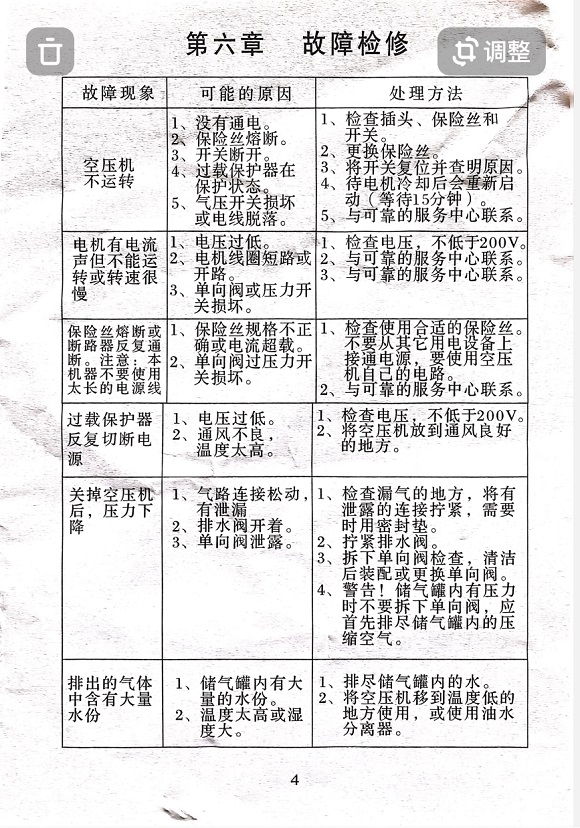 第六章 故障检修
调整
故障现象
可能的原因
处理方法
空压机
不运转
1、没有通电。
2、保险丝熔断。
3、开关断开。
4、过载保护器在
保护状态。
5、气压开关损坏
或电线脱落。
1、检查插头、保险丝和
开关。
2、更换保险丝。
3、将开关复位并查明原因。
4、待电机冷却后会重新启
动（等待15分钟）。
5、与可靠的服务中心联系。
电机有电流
声但不能运
转或转速很
慢
1、电压过低。
2、电机线圈短路或
开路。
3、单向阀或压力开
关损坏。
1、检查电压，不低于200V。
2、与可靠的服务中心联系。
3、与可靠的服务中心联系。
保险丝熔断或
断路器反复通
断。注意：本
机器不要使用
太长的电源线
1、保险丝规格不正
确或电流超载。
2、单向阀过压力开
关损坏。
1、检查使用合适的保险丝。
不要从其它用电设备上
接通电源，要使用空压
机自己的电路。
2、与可靠的服务中心联系。
过载保护器
反复切断电
源
1、电压过低。
2、通风不良，
温度太高。
1、检查电压，不低于200V。
2、将空压机放到通风良好
的地方。
关掉空压机
后，压力下
降
1、气路连接松动，
有泄漏
2、排水阀开着。
3、单向阀泄露。
1、检查漏气的地方，将有
泄露的连接拧紧，需要
时用密封垫。
2、拧紧排水阀。
3、拆下单向阀检查，清洁
后装配或更换单向阀。
4、警告！储气罐内有压力
时不要拆下单向阀，应
首先排尽储气罐内的压
缩空气。
排出的气体
中含有大量
水份
1、储气罐内有大
量的水份。
2、温度太高或湿
度大。
1、排尽储气罐内的水。
2、将空压机移到温度低的
地方使用，或使用油水
分离器。
4